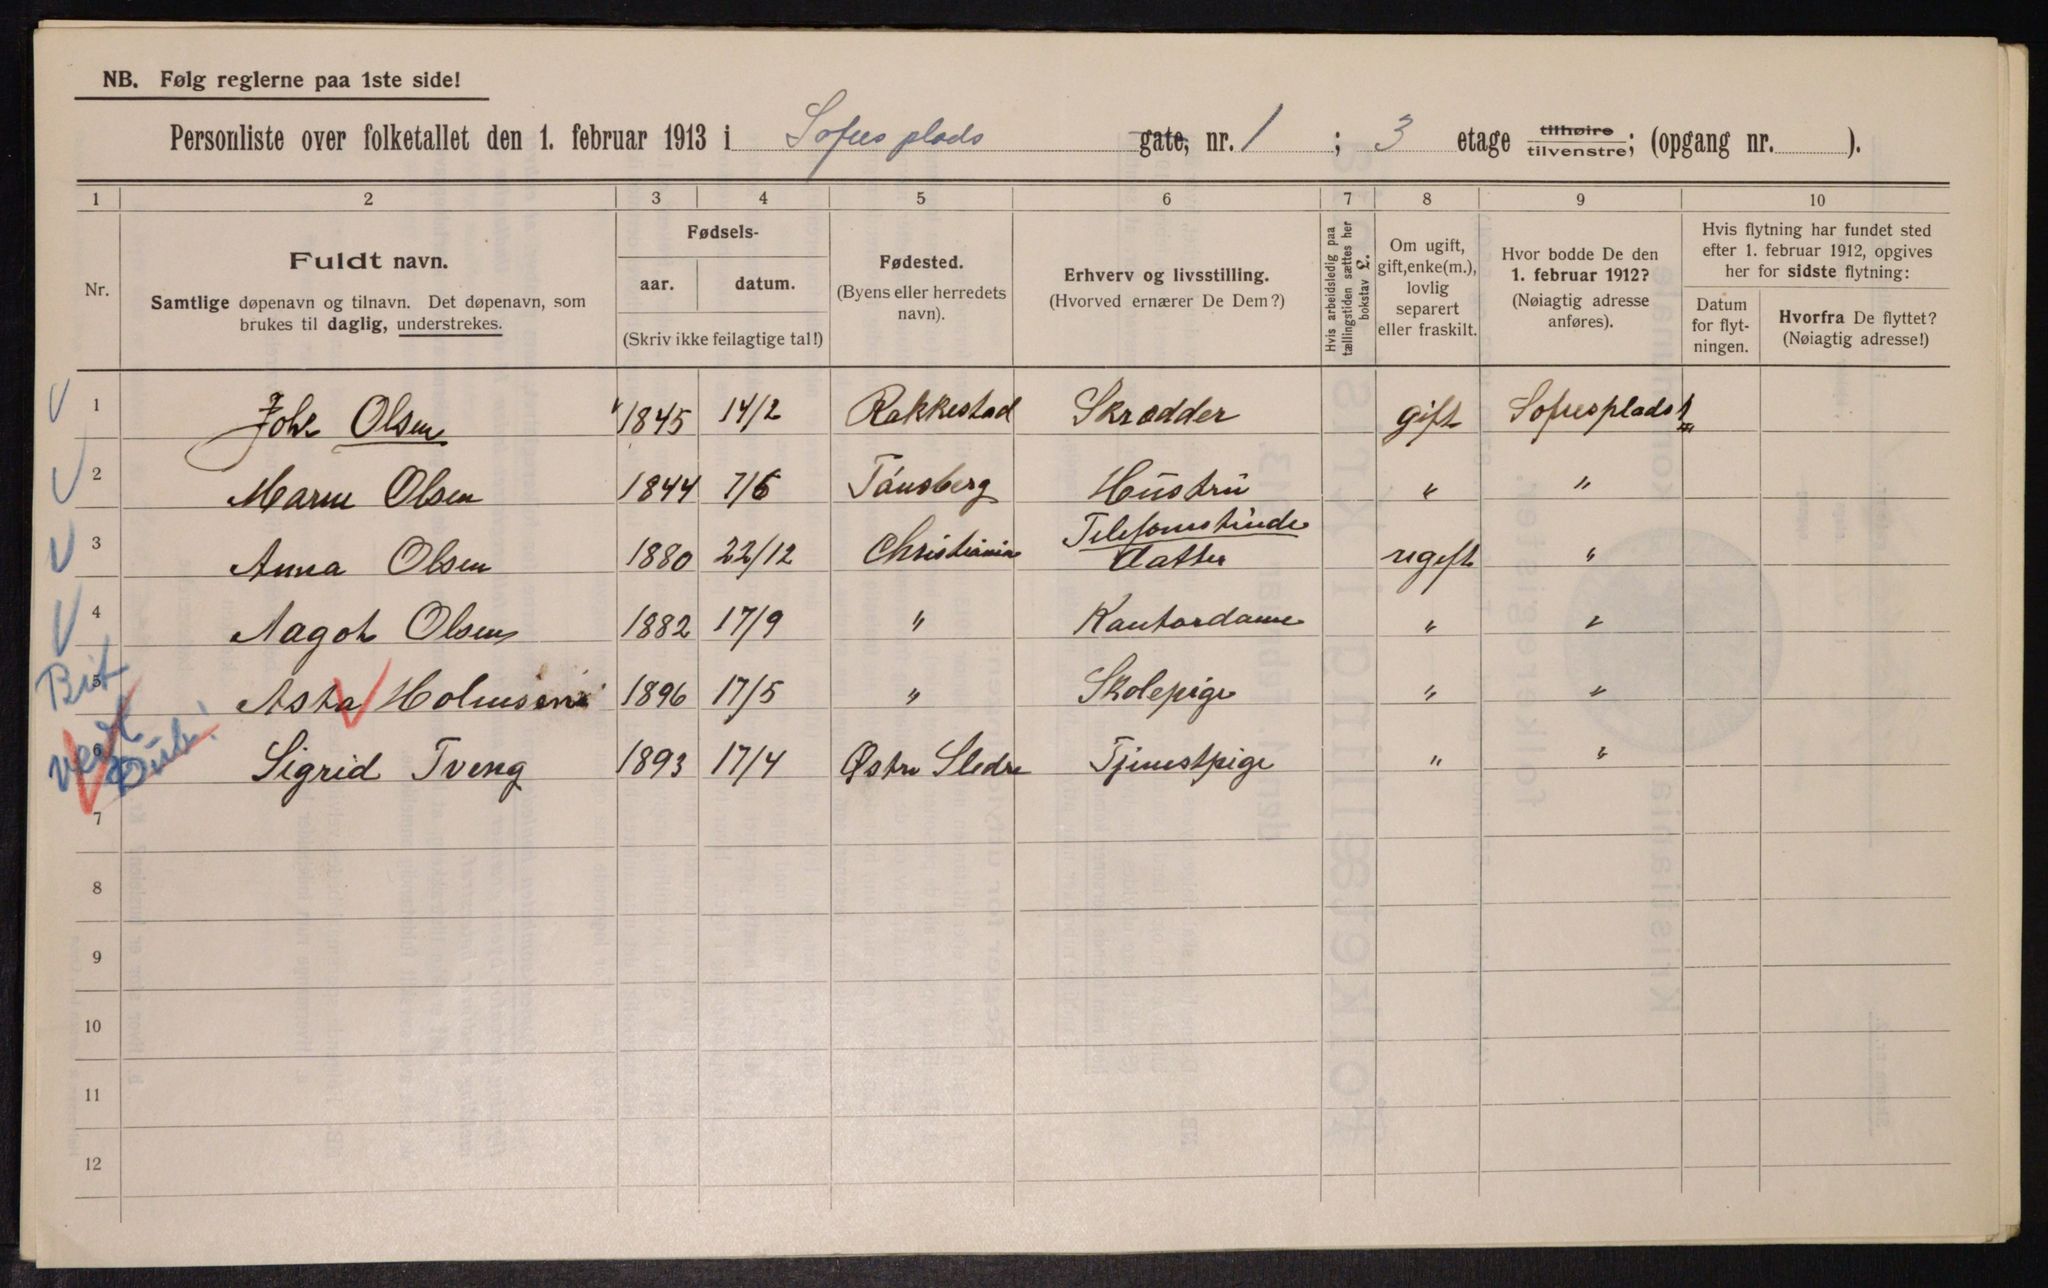 NB. Følg reglerne paa 1ste side!
Personliste over folketallet den 1. februar 1913 i Sofies plads gate, nr. 1 ; 3 etage tilhøire tilvenstre; (opgang nr. ).
1 2 3 4 5 6 7 8 9 10
Nr.
Fuldt navn.
Samtlige døpenavn og tilnavn. Det døpenavn, som
brukes til daglig, understrekes.
Fødsels-
aar. datum.
(Skriv ikke feilagtige tal!)
Fødested.
(Byens eller herredets
navn).
Erhverv og livsstilling.
(Hvorved ernærer De Dem?)
Hvis arbeidsledig paa
tællingstiden sættes her
bokstav £.
Om ugift,
gift, enke(m.),
lovlig
separert
eller fraskilt.
Hvor bodde De den
1. februar 1912?
(Nøiagtig adresse
anføres).
Hvis flytning har fundet sted
efter 1. februar 1912, opgives
her for sidste flytning:
Datum
for flyt-
ningen.
Hvorfra De flyttet?
(Nøiagtig adresse!)
1 Joh. Olsen 1845 14/2 Rakkestad Skrædder gift Sofiesplads 1
2 Marie Olsen 1844 7/6 Tönsberg Hustru " "
3 Anna Olsen 1880 22/12 Christiania Telefonistinde Datter ugift "
4 Aagot Olsen 1882 17/9 " Kontordame " "
5 Asta Holmsen 1896 17/5 " Skolepige " "
6 Sigrid Tveng 1893 17/4 Østre Slidre Tjenestpige " "
7
8
9
10
11
12